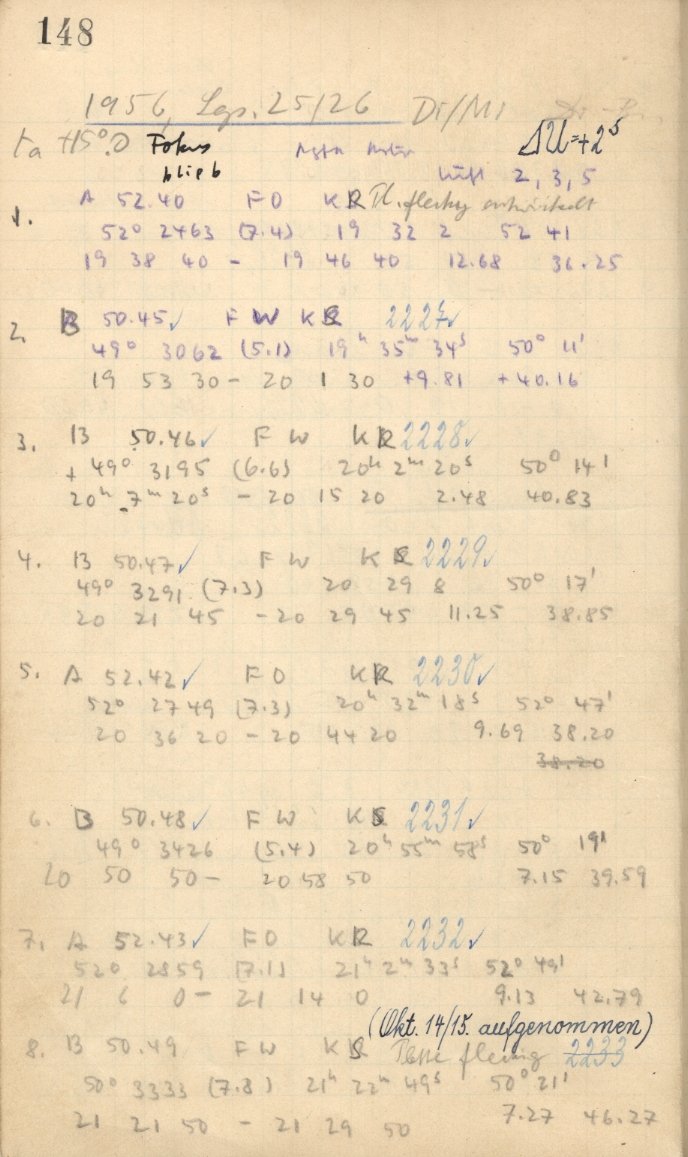 148
1956, Sep. 25/26 Di/Mi
ta +15°.0 Fokus ΔU=+2ˢ
blieb Lüft 2, 3, 5
1. A 52.40 F O K R Pl. fleckig entwickelt
52° 2463 (7.4) 19 32 2 52 41
19 38 40 – 19 46 40 12.68 36.25
2. B 50.45 ✓ F W K S 2227 ✓
49° 3062 (5.1) 19ʰ 35ᵐ 34ˢ 50° 11'
19 53 30 – 20 1 30 +9.81 +40.16
3. B 50.46 ✓ F W K R 2228 ✓
+ 49° 3195 (6.6) 20ʰ 2ᵐ 20ˢ 50° 14'
20ʰ 7ᵐ 20ˢ – 20 15 20 2.48 40.83
4. B 50.47 ✓ F W K S 2229 ✓
49° 3291 (7.3) 20 29 8 50° 17'
20 21 45 – 20 29 45 11.25 38.85
5. A 52.42 ✓ F O K R 2230 ✓
52° 2749 (7.3) 20ʰ 32ᵐ 18ˢ 52° 47'
20 36 20 – 20 44 20 9.69 38.20
38.20
6. B 50.48 ✓ F W K S 2231 ✓
49° 3426 (5.4) 20ʰ 55ᵐ 58ˢ 50° 19'
20 50 50 – 20 58 50 7.15 39.59
7. A 52.43 ✓ F O K R 2232 ✓
52° 2859 (7.1) 21ʰ 2ᵐ 33ˢ 52° 49'
21 6 0 – 21 14 0 9.13 42.79
(Okt. 14/15. aufgenommen)
8. B 50.49 F W K S fleckig 2233
50° 3333 (7.8) 21ʰ 22ᵐ 49ˢ 50° 21'
21 21 50 – 21 29 50 7.27 46.27